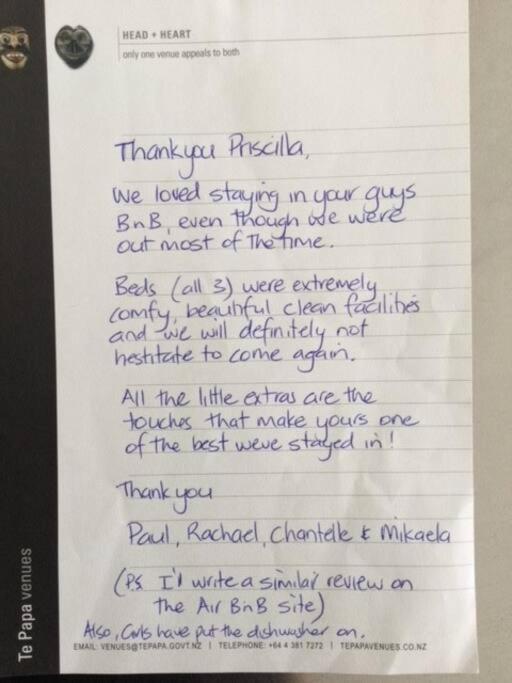 HEAD + HEART
only one venue appeals to both
Thankyou Priscilla,
We loved staying in your guys
BnB, even though we were
out most of the time.
Beds (all 3) were extremely
comfy, beautiful clean facilities
and we will definitely not
hestitate to come again.
All the little extras are the
touches that make yours one
of the best weve stayed in!
Thank you
Paul, Rachael, Chantelle & Mikaela
(Ps I'l write a similar review on
the Air BnB site)
Also, Girls have put the dishwasher on.
EMAIL: VENUES@TEPAPA.GOVT.NZ | TELEPHONE: +64 4 381 7272 | TEPAPAVENUES.CO.NZ
Te Papa venues